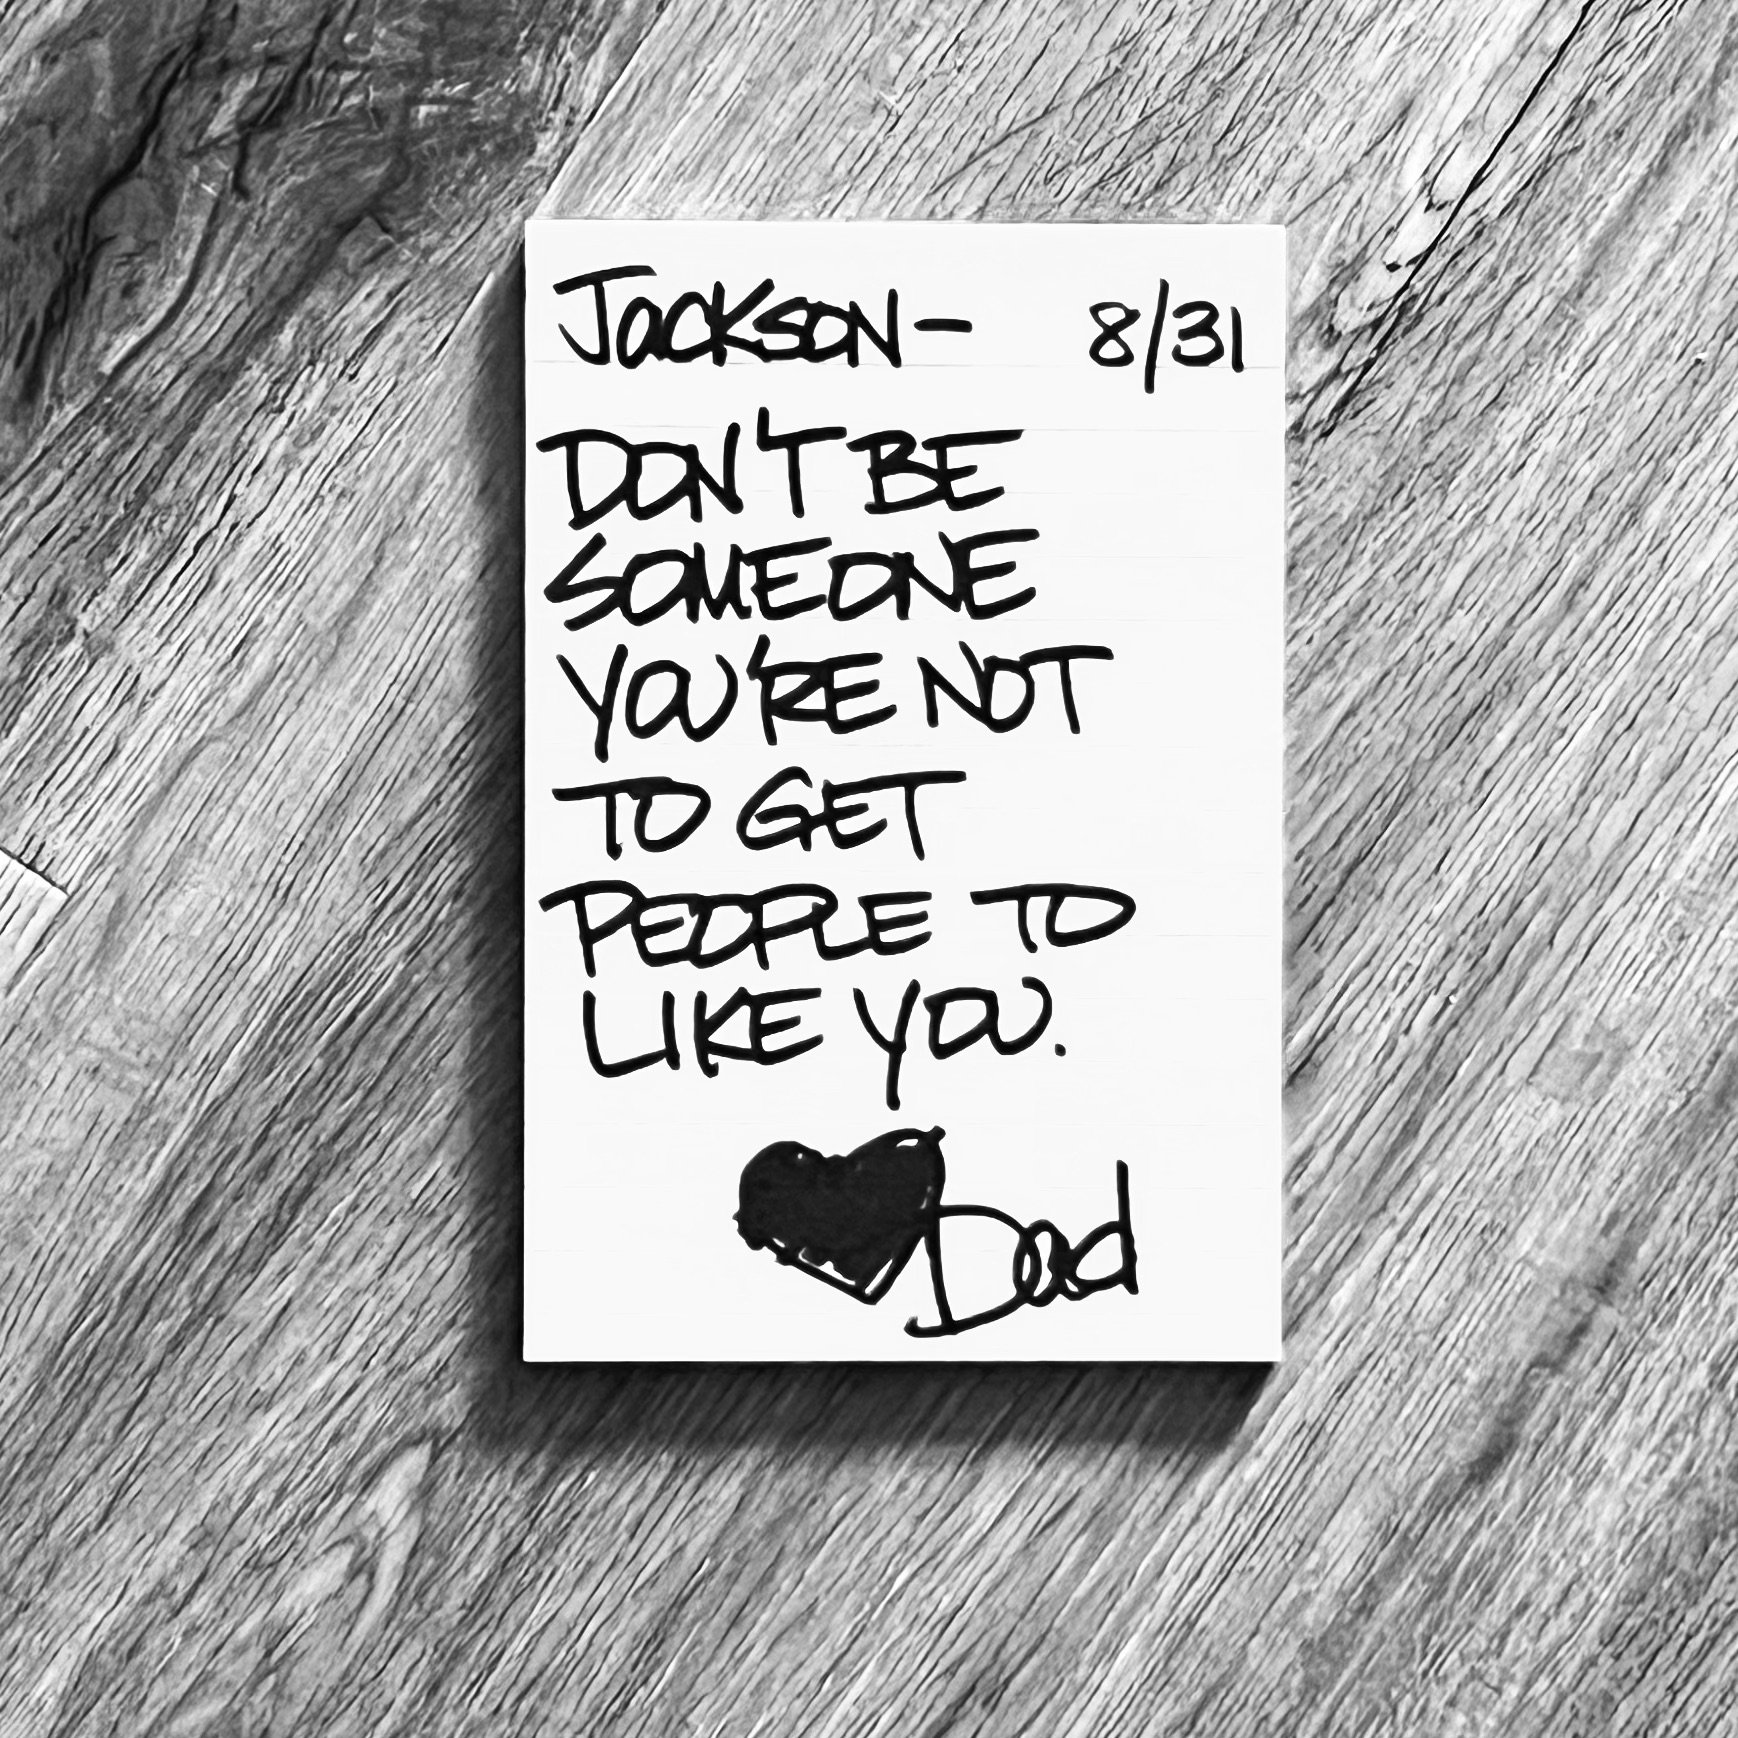 Jackson— 8/31
DON'T BE
SOMEONE
YOU'RE NOT
TO GET
PEOPLE TO
LIKE YOU.
Dad